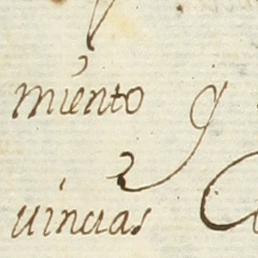 miento q
uincias